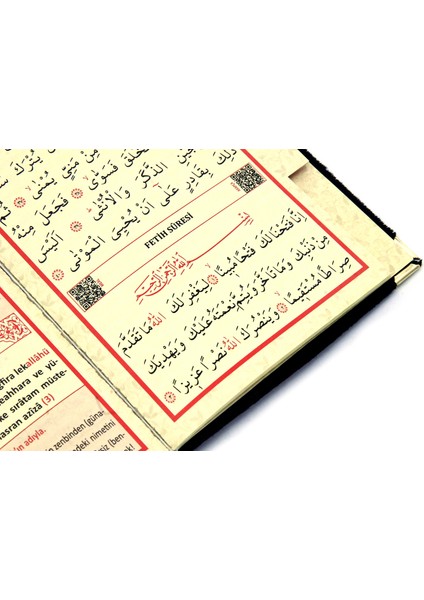 يُتْرَكَ
مِنْ مَنِيٍّ يُمْنٰى
فَخَلَقَ فَسَوّٰى
فَجَعَلَ مِنْهُ
الذَّكَرَ وَالْاُنْثٰى
اَلَيْسَ
ذٰلِكَ بِقَادِرٍ عَلٰٓى اَنْ يُحْيِيَ الْمَوْتٰى
FETİH SÛRESİ
بِسْمِ اللّٰهِ الرَّحْمٰنِ الرَّحِيمِ
اِنَّا فَتَحْنَا لَكَ فَتْحًا مُبِينًا لِيَغْفِرَ لَكَ اللّٰهُ مَا تَقَدَّمَ
مِنْ ذَنْبِكَ وَمَا تَاَخَّرَ وَيُتِمَّ نِعْمَتَهُ عَلَيْكَ وَيَهْدِيَكَ
صِرَاطًا مُسْتَقِيمًا وَيَنْصُرَكَ اللّٰهُ نَصْرًا عَزِيزًا
ğfira lekallâhü
eahhara ve yü-
ke sirâtam müste-
nasran azîzâ (3)
ın adıyla.
zenbinden (güna-
deki nimetini
niz (ben-